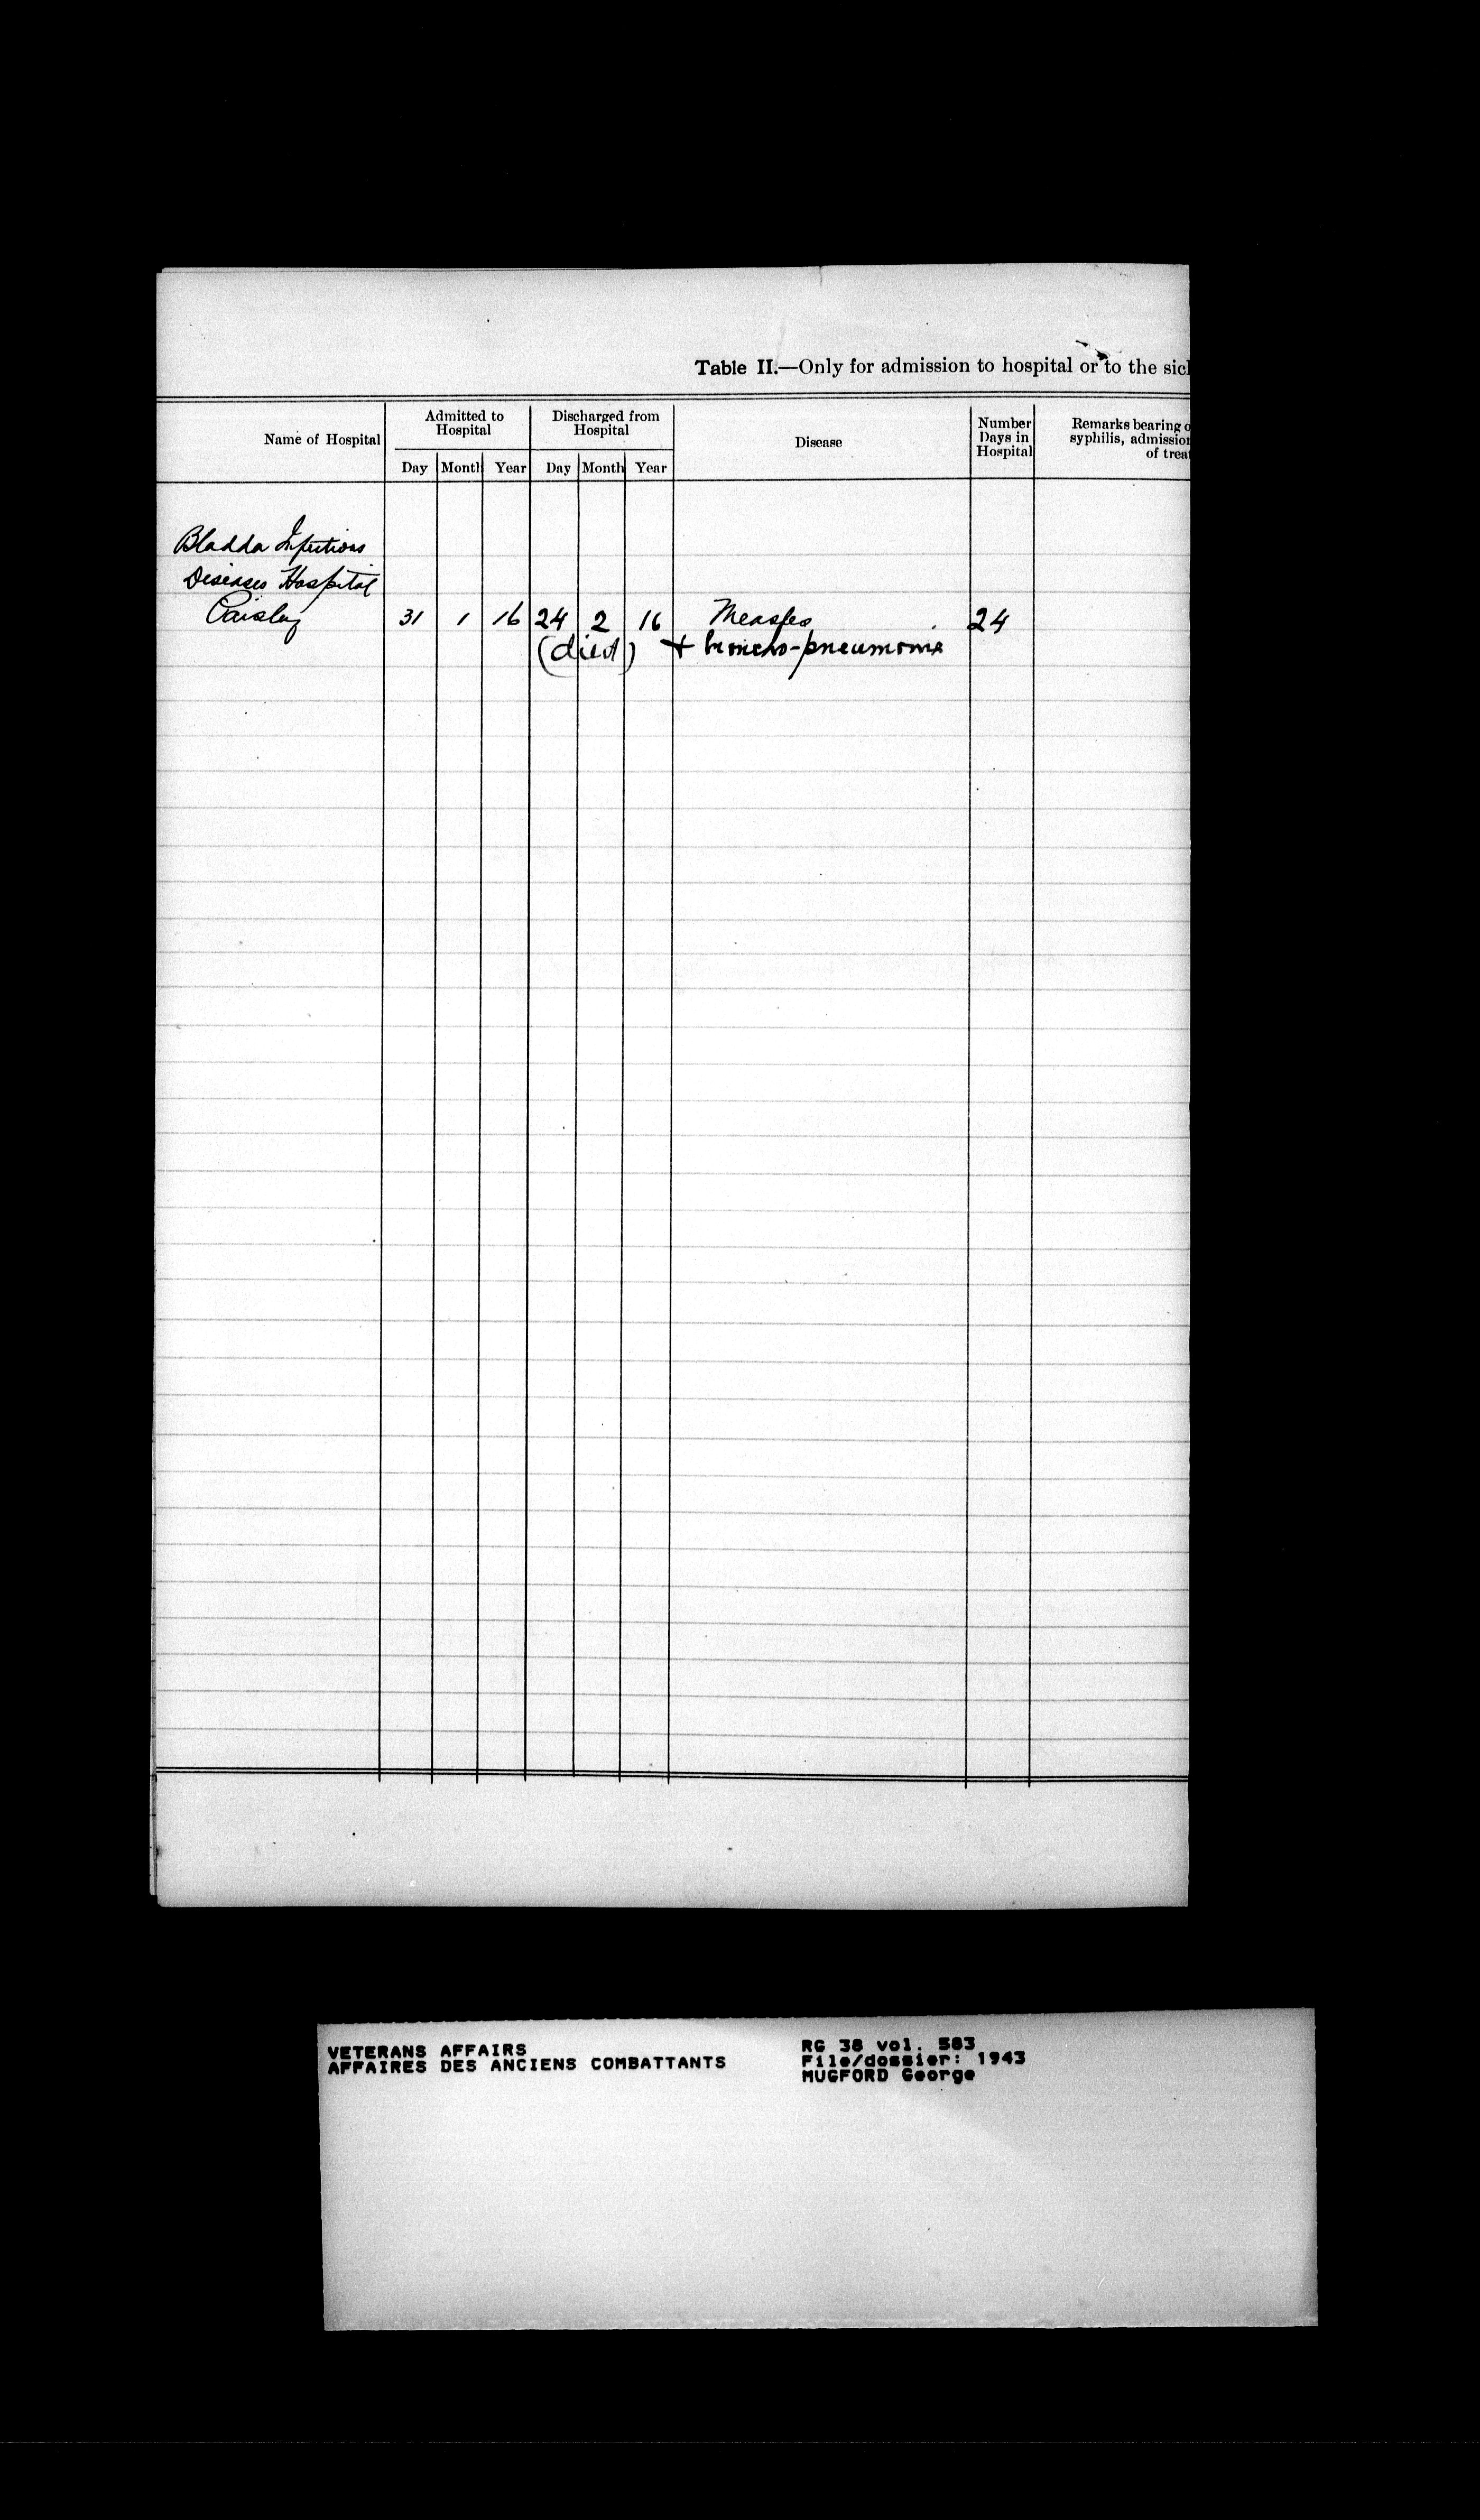 Table II.—Only for admission to hospital or to the sick
Name of Hospital
Admitted to
Hospital
Discharged from
Hospital
Disease
Number
Days in
Hospital
Remarks bearing o
syphilis, admission
of treat
Day Month Year Day Month Year
Bladda Infectious
Diseases Hospital
Paisley 31 1 16 24 2 16 Measles 24
(died) + broncho-pneumonia
VETERANS AFFAIRS
AFFAIRES DES ANCIENS COMBATTANTS
RG 38 vol. 583
File/dossier: 1943
MUGFORD George